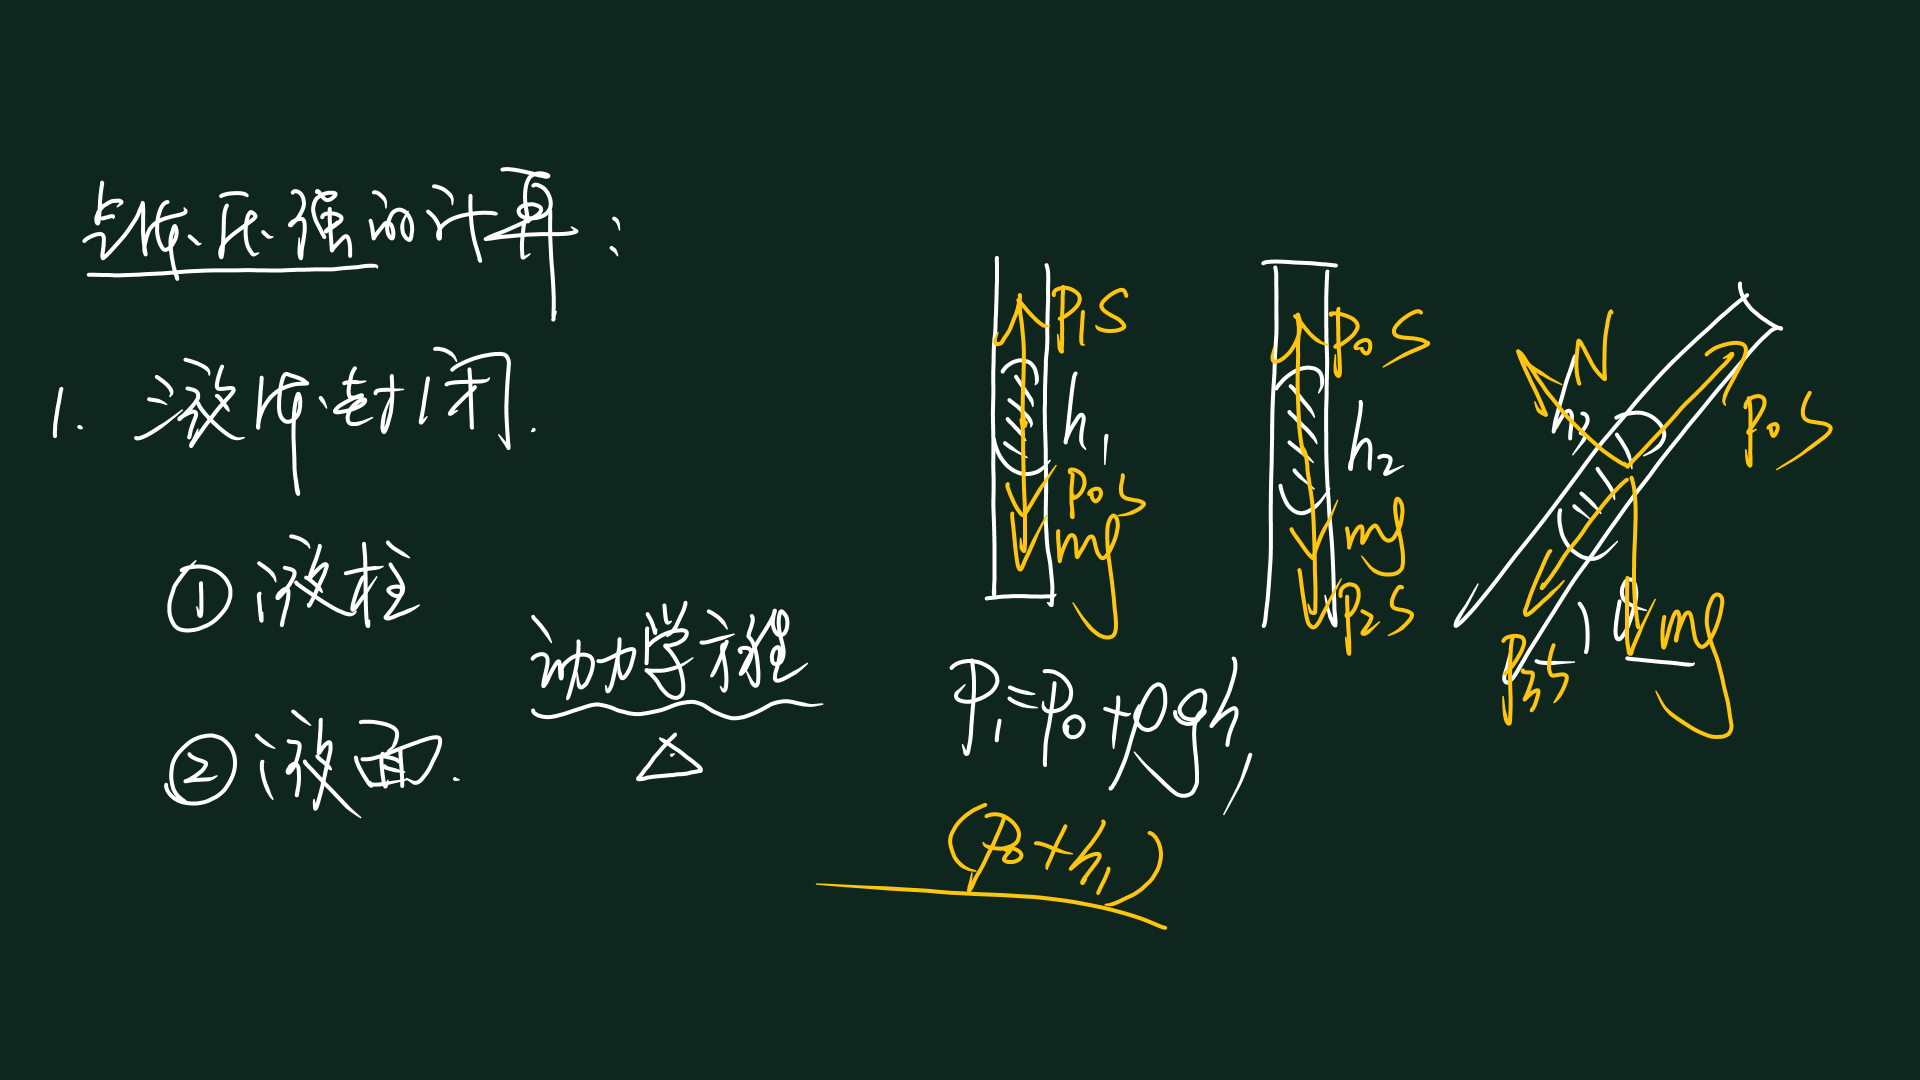 气体压强的计算：
1. 液体封闭.
① 液柱
② 液面.
动力学方程
△
P₁S
h₁
P₀S
mg
P₀S
h₂
mg
P₂S
N
h₃
P₀S
P₃S
θ
mg
P₁=P₀+ρgh₁
(P₀+h₁)